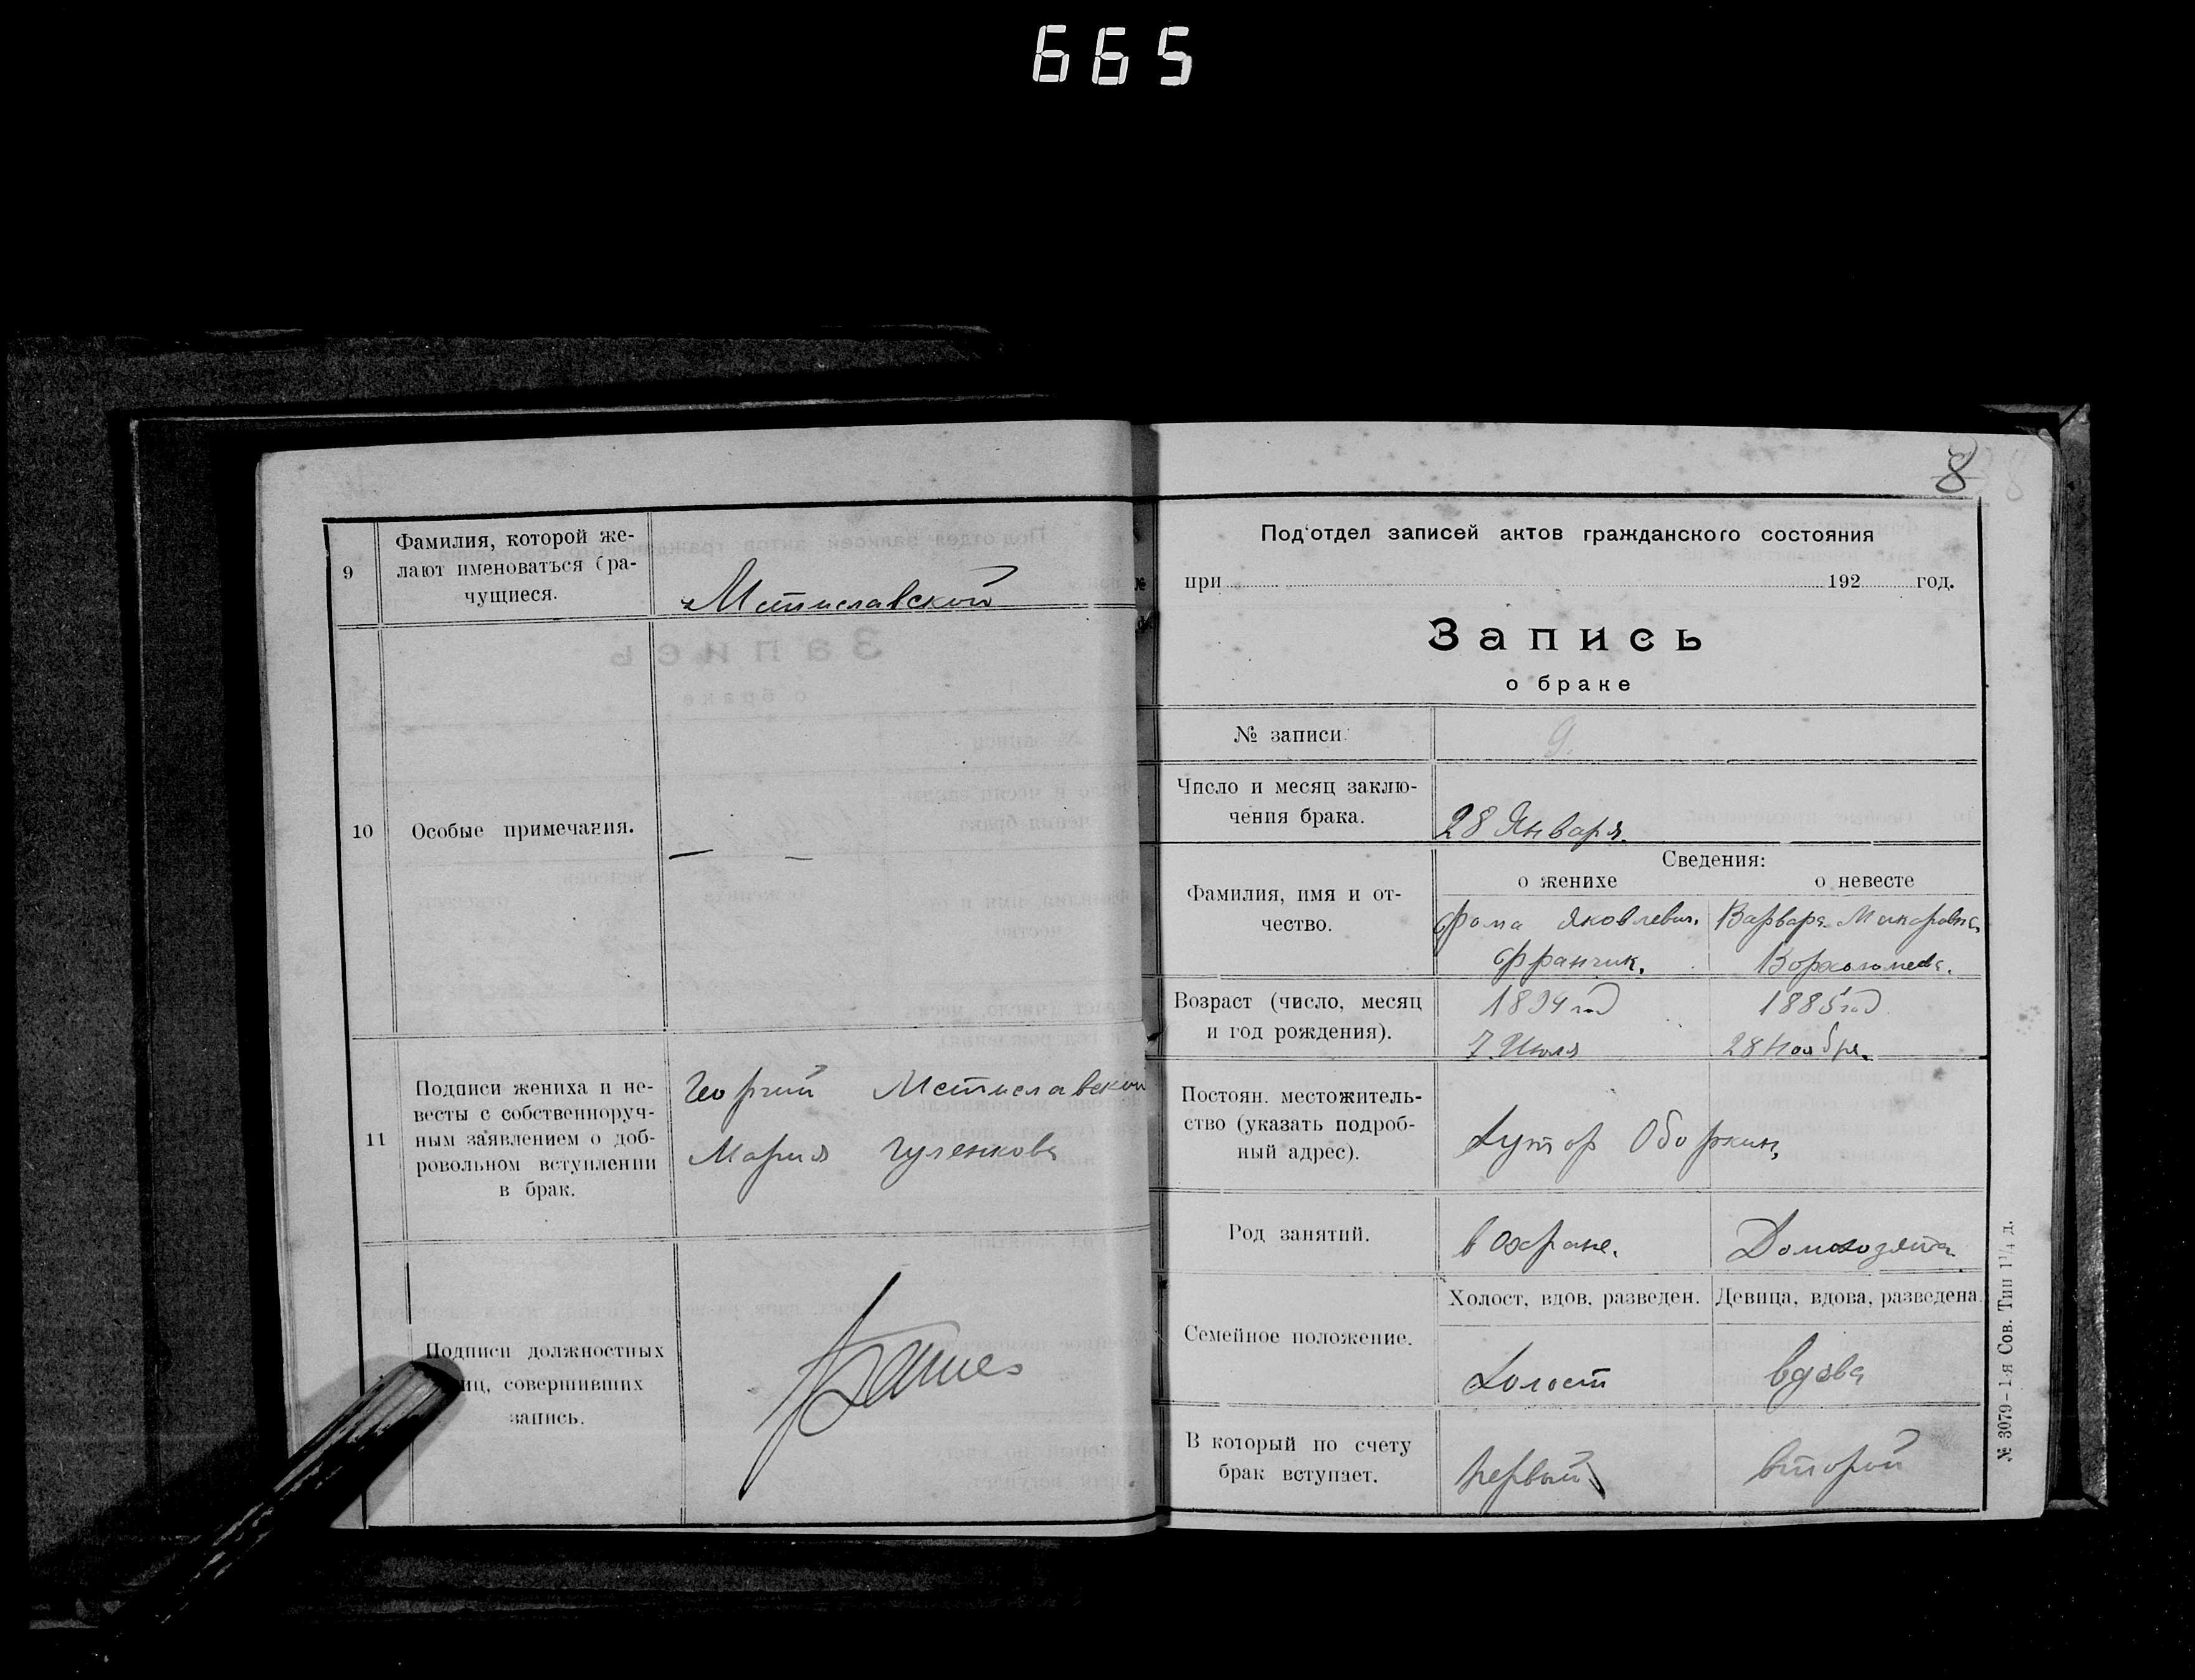 665
9
Фамилия, которой же-
лают именоваться (ра-
чущиеся.
Мстиславской
10
Особые примечания.
— —
11
Подписи жениха и не-
весты с собственноруч-
ным заявлением о доб-
ровольном вступлении
в брак.
Георгий Мстиславской
Мария Гуленкова
Подписи должностных
иц, совершивших
запись.
8
Под'отдел записей актов гражданского состояния
при 192 год.
Запись
о браке
№ записи
9.
Число и месяц заклю-
чения брака.
28 Января.
Сведения:
о женихе о невесте
Фамилия, имя и от-
чество.
Фома Яковлевич. Варвара Макаровна
Франчик. Ворхоломеева.
Возраст (число, месяц
и год рождения).
1894 год 1885 год
7 Июля 28 Ноября.
Постоян. местожитель-
ство (указать подроб-
ный адрес).
Хутор
Род занятий.
в Охране. Домохозяйка
Семейное положение.
Холост, вдов, разведен. Девица, вдова, разведена
Холост вдова
В который по счету
брак вступает.
первый второй
№ 3079–1-я Сов. Тип 1¼ д.